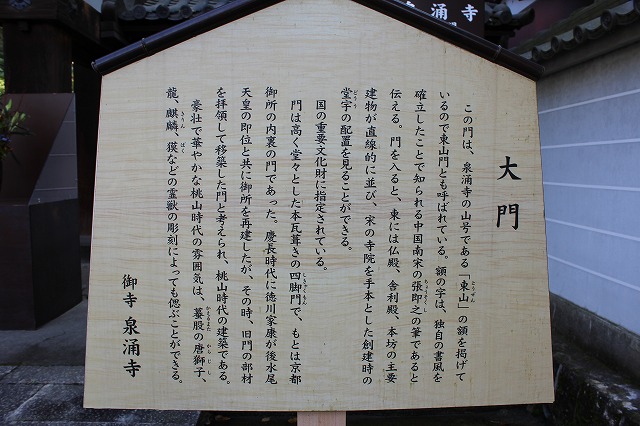 大門
この門は、泉涌寺の山号である「東山」の額を掲げて
いるので東山門とも呼ばれている。額の字は、独自の書風を
確立したことで知られる中国南宋の張即之の筆であると
伝える。門を入ると、東には仏殿、舎利殿、本坊の主要
建物が直線的に並び、宋の寺院を手本とした創建時の
堂宇の配置を見ることができる。
国の重要文化財に指定されている。
門は高く堂々とした本瓦葺きの四脚門で、もとは京都
御所の内裏の門であった。慶長時代に徳川家康が後水尾
天皇の即位と共に御所を再建したが、その時、旧門の部材
を拝領して移築した門と考えられ、桃山時代の建築である。
豪壮で華やかな桃山時代の雰囲気は、蟇股の唐獅子、
龍、麒麟、獏などの霊獣の彫刻によっても偲ぶことができる。
御寺 泉涌寺
涌寺